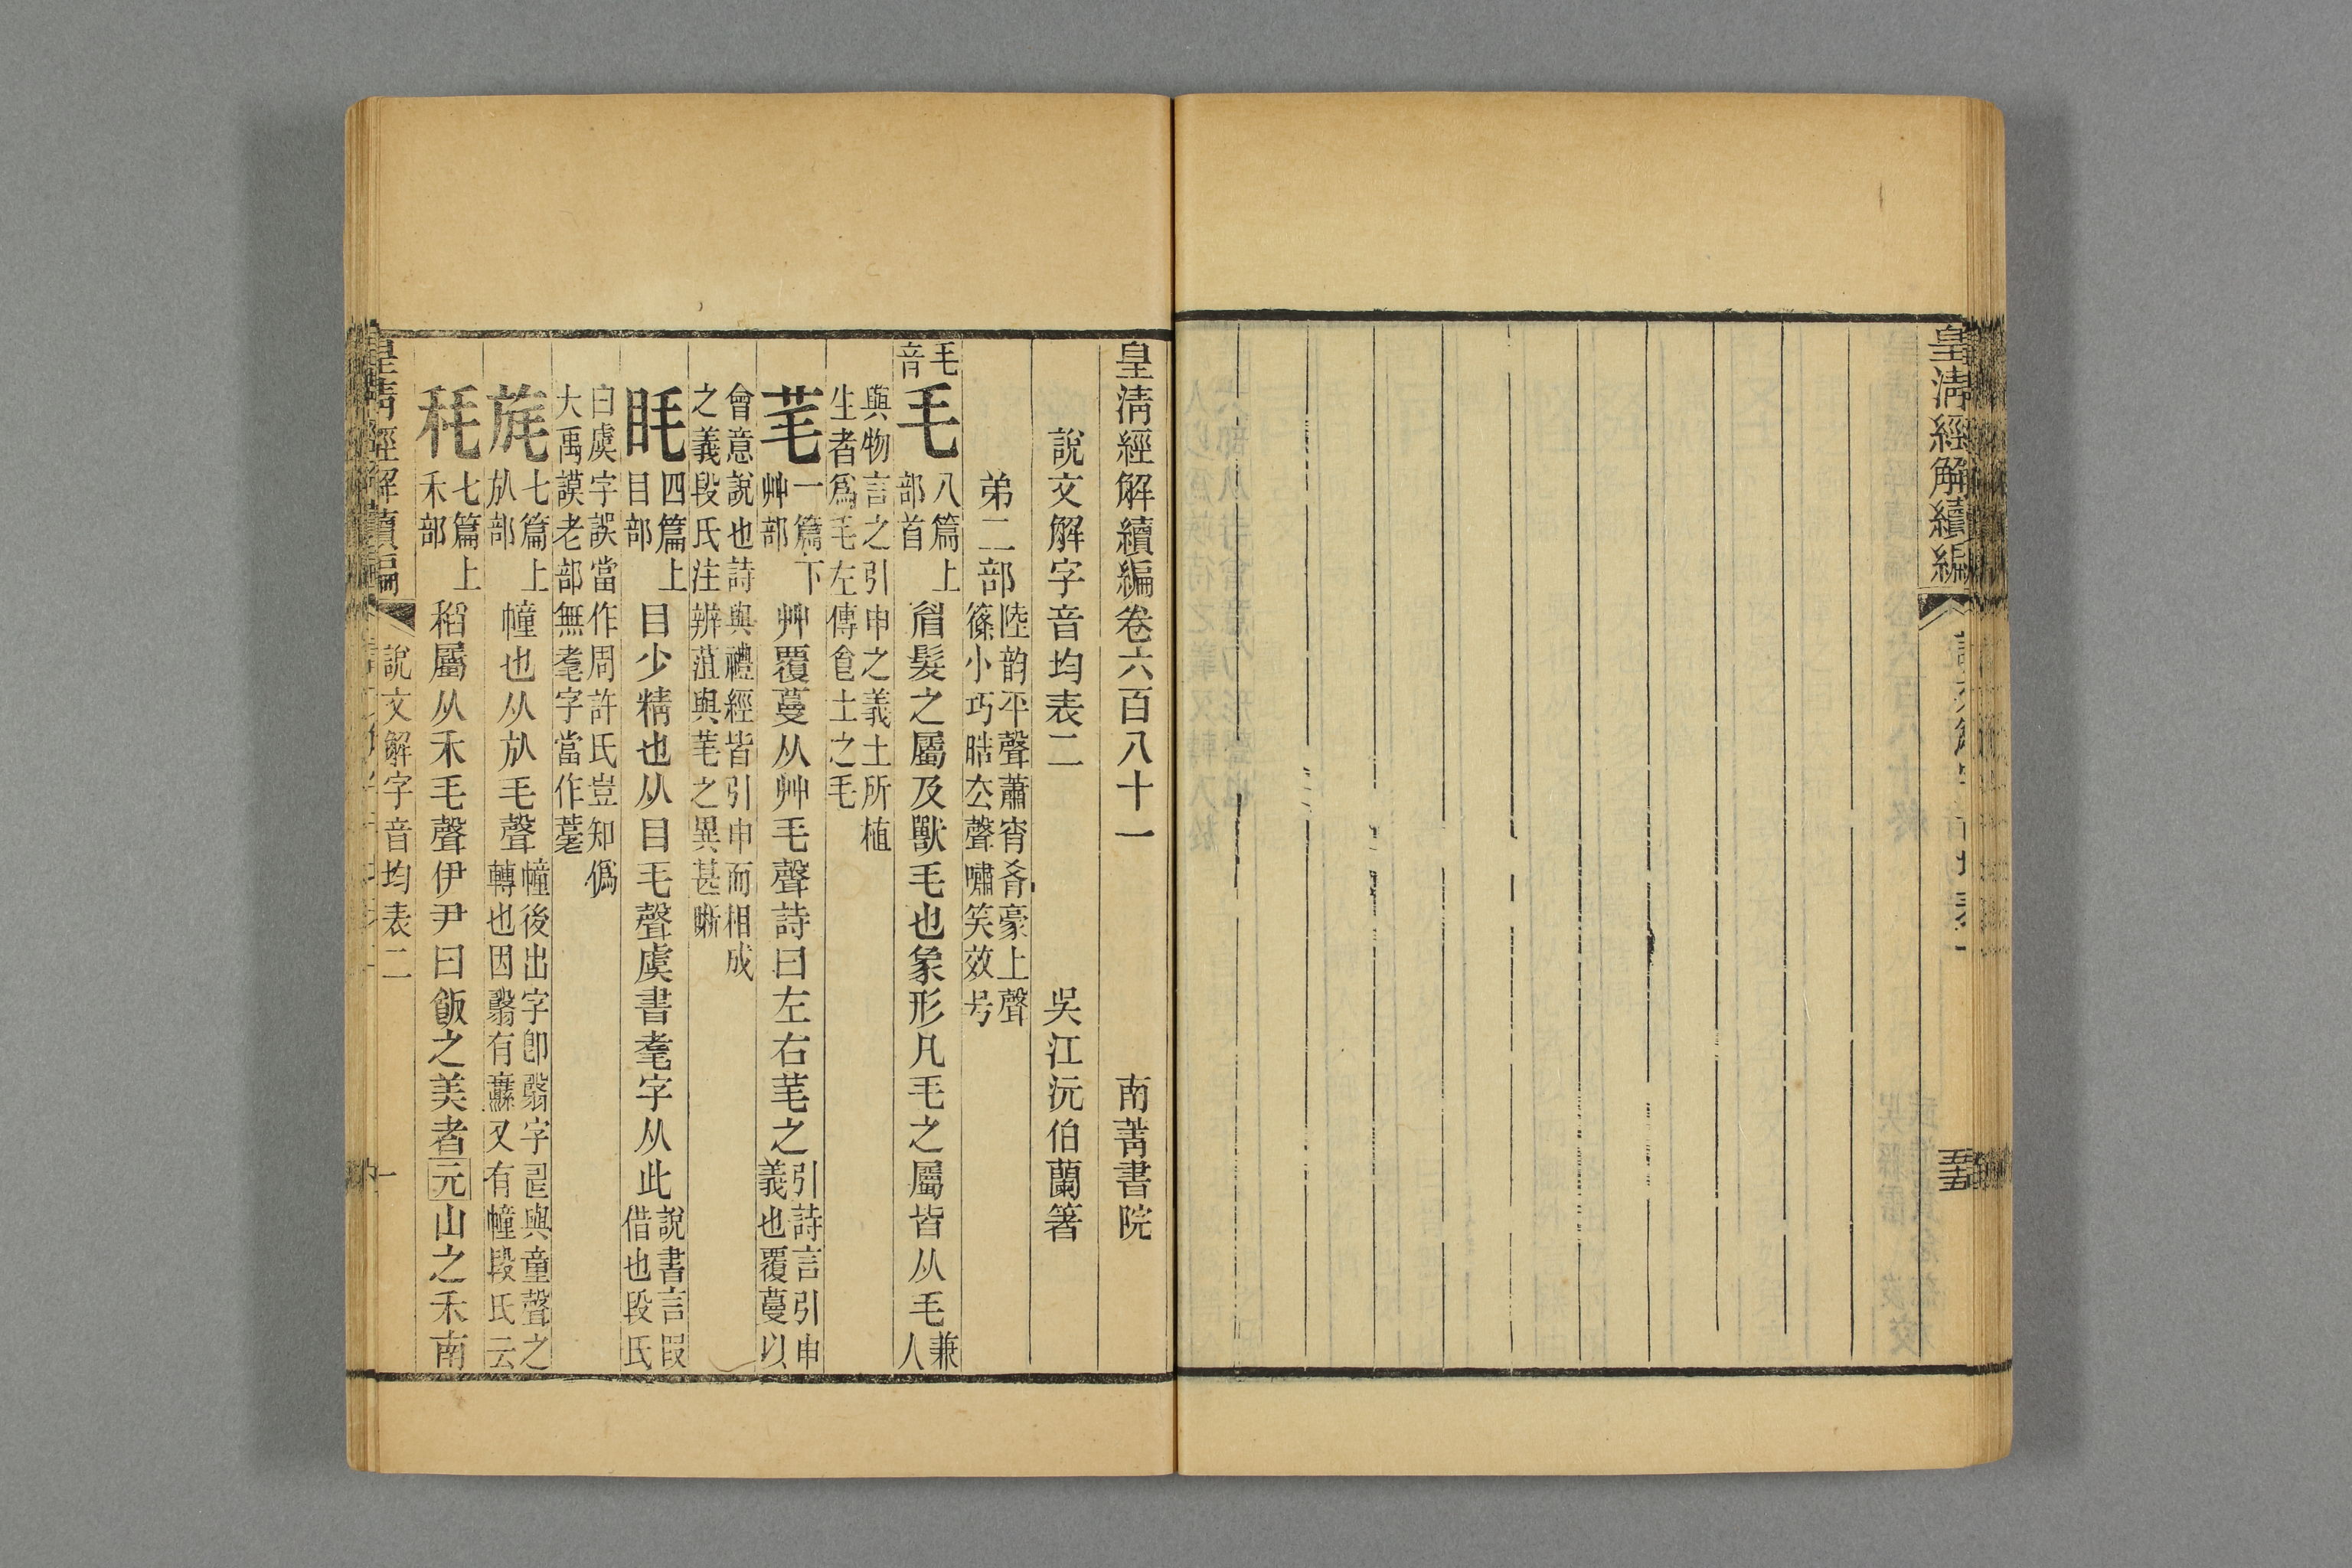 皇淸經解續編
五十五
皇淸經解續編卷六百八十一 南菁書院
說文解字音均表二 吳江沅伯蘭箸
弟二部 陸韵平聲蕭宵肴豪上聲
篠小巧晧厺聲嘯笑效号
毛音
毛 八篇上
部首
眉髮之屬及獸毛也象形凡毛之屬皆从毛 兼
人
與物言之引申之義土所植
生者爲毛左傳食土之毛
芼 一篇下
艸部
艸覆蔓从艸毛聲詩曰左右芼之 引詩言引申
義也覆蔓以
會意說也詩與禮經皆引申而相成
之義段氏注辨菹與芼之異甚晣
眊 四篇上
目部
目少精也从目毛聲虞書耄字从此 說書言叚
借也段氏
曰虞字誤當作周許氏豈知僞
大禹謨老部無耄字當作薹
旄 七篇上
㫃部
幢也从㫃毛聲 幢後出字卽翳字㠯與童聲之
轉也因翳有纛又有幢段氏云
秏 七篇上
禾部
稻屬从禾毛聲伊尹曰飯之美者元山之禾南
皇淸經解續編 說文解字音均表二 一